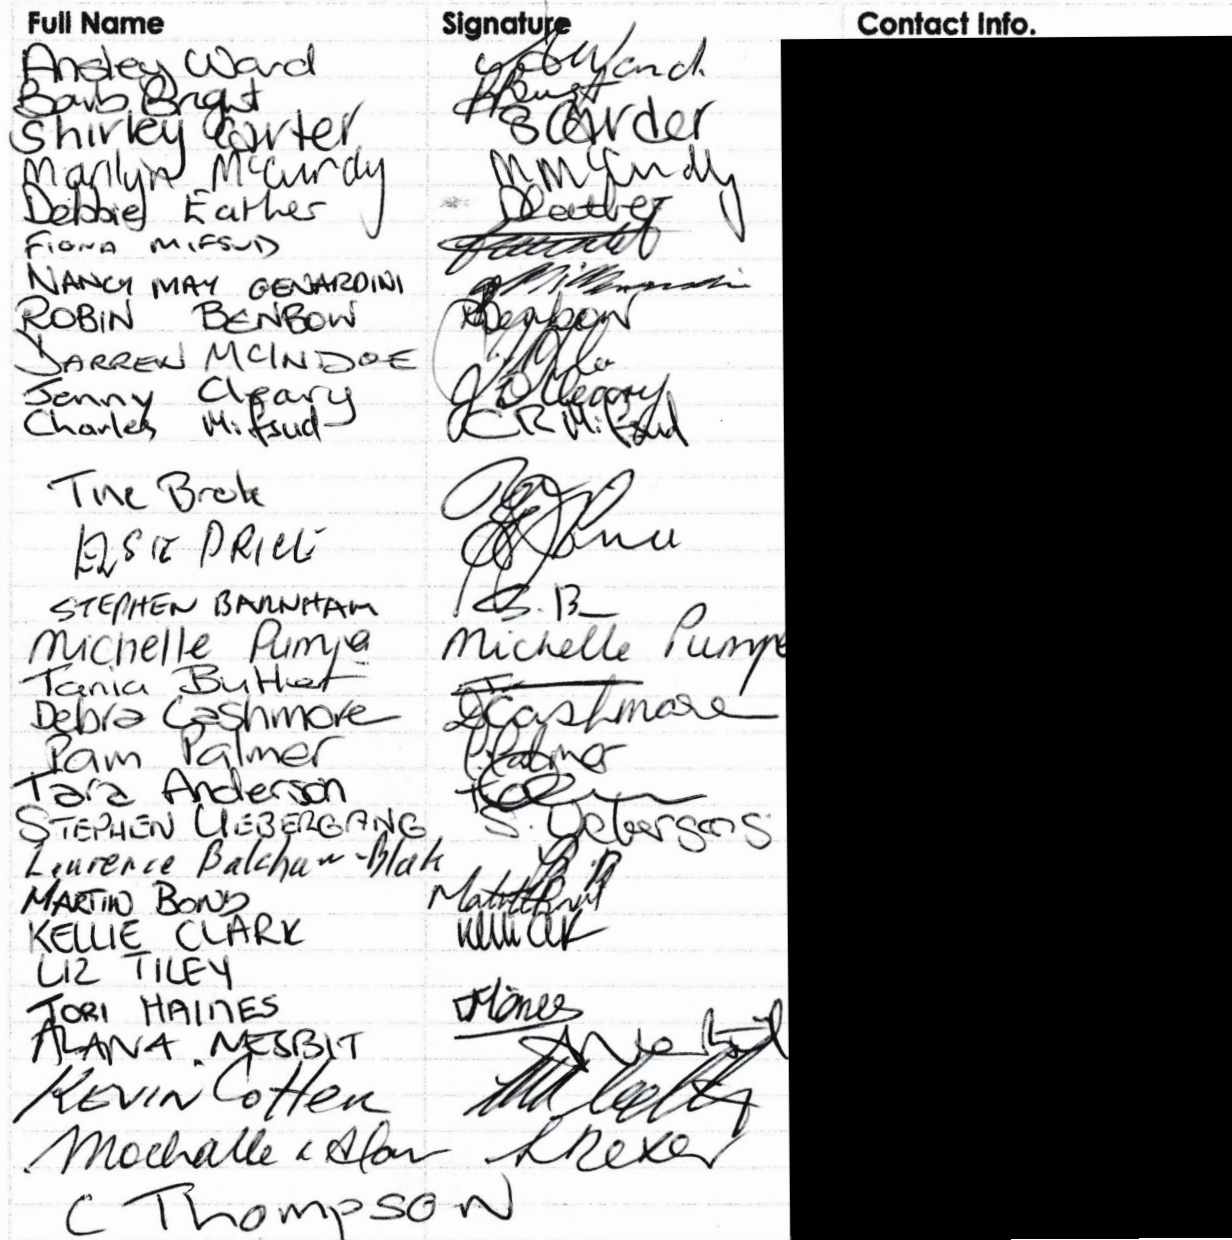 Full Name Signature Contact Info.
Ansley Ward
Barb Bright
Shirley Carter S Carder
Marilyn McCurdy M McCurdy
Debbie Eather DEather
FIONA MIFSUD
NANCY MAY GENARDINI
ROBIN BENBOW RBenbow
DARREN MCINDOE
Jenny Cleary J D Cleary
Charles Mifsud CR Mifsud
Tine Brok
ELSIE PRICE
STEPHEN BARNHAM S. B
Michelle Pumpa Michelle Pumpa
Tania Butler
Debra Cashmore DCashmore
Pam Palmer P. Palmer
Tara Anderson
STEPHEN UEBERGANG S. Uebergang
Laurence Balchaw-Blak
MARTIN BOND
KELLIE CLARK
LIZ TILEY
TORI HAINES
ALANA NESBIT
KEVIN Cotten
Mochalle & Alan
C Thompson